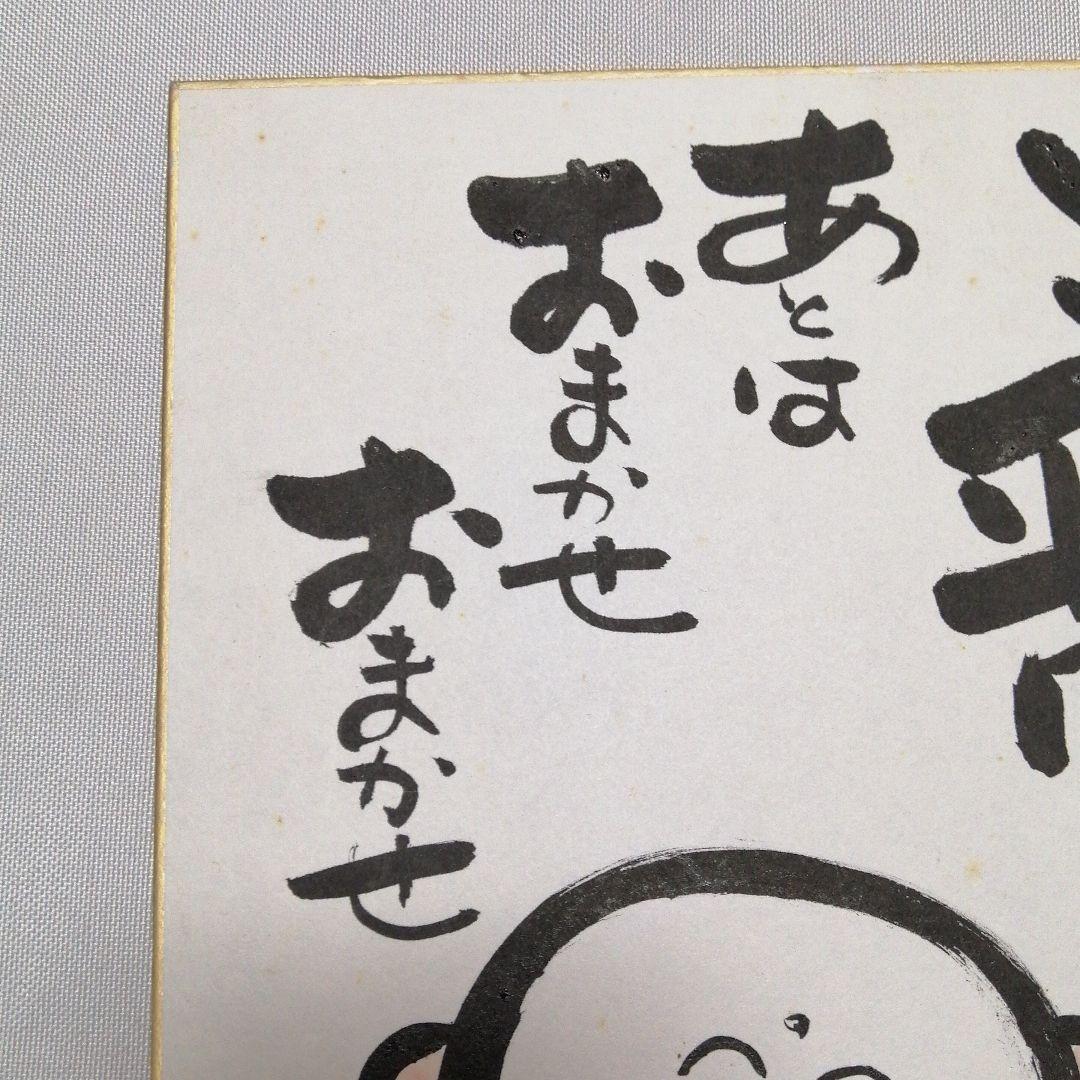 あとは
おまかせ
おまかせ